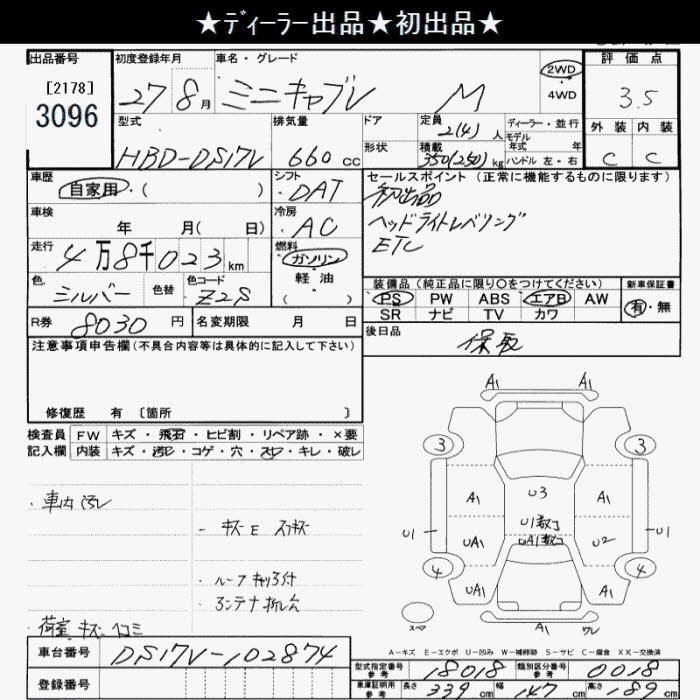 ★ﾃﾞｨｰﾗｰ出品★初出品★
出品番号
[2178]
3096
初度登録年月
27 8 月
車名・グレード
ミニキャブV M
2WD
4WD
評価点
3.5
外装 内装
C C
型式
HBD-DS17V
排気量
660 cc
ドア
形状
定員
2(4) 人
積載
350(250) kg
ディーラー・並行
モデル
年式 年
ハンドル 左・右
車歴
自家用・( )
シフト
・DAT
セールスポイント (正常に機能するものに限ります)
初出品
ヘッドライトレベリング
ETC
車検
年 月( 日)
冷房
・AC
走行
4万8千023km
燃料
ガソリン
軽油
( )
色
シルバー
色替
色コード
Z2S
装備品 (純正品に限り○をつけてください)
PS PW ABS エアB AW
SR ナビ TV カワ
新車保証書
有・無
R券 8030 円
名変期限 月 日
後日品
保取
注意事項申告欄(不具合内容等は具体的に記入して下さい)
修復歴 有 〔箇所 〕
検査員 FW キズ・飛石・ヒビ割・リペア跡・×要
記入欄 内装 キズ・汚レ・コゲ・穴・スレ・キレ・破レ
・車内汚レ
－キズE スリキズ
・ルーフキャリア付
・アンテナ折レ
・荷室キズ・ヘコミ
A1 A1
3 3
A1 U3 A1
U1 UA1 U1数コ U2 U1
UA1数コ
4 4
UA1 A1
スペア
A1 W
A－キズ E－エクボ U－凹み W－補修跡 S－サビ C－腐食 XX－交換済
車台番号 DS17V-102874
型式指定番号
参考
18018
類別区分番号
参考
0018
登録番号
車庫証明用
参考
長さ 339 cm 幅 147 cm 高さ 189 cm